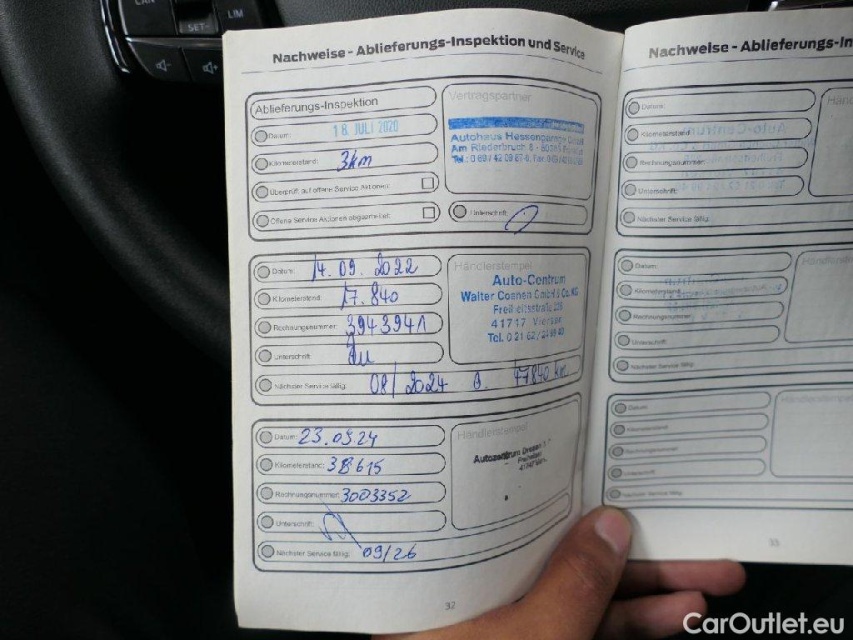 LIM
SET-
Nachweise - Ablieferungs-Inspektion und Service
Ablieferungs-Inspektion
Datum: 18. JULI 2020
Kilometerstand: 3km
Überprüft auf offene Service Aktionen:
Offene Service Aktionen abgearbeitet:
Vertragspartner
Autohaus Hessengarage GmbH
Am Riederbruch 8 -
Unterschrift:
Datum: 14.09.2022
Kilometerstand: 17.840
Rechnungsnummer: 3943941
Unterschrift:
Nächster Service fällig: 08/2024 o. 47840 km
Händlerstempel
Auto-Centrum
Walter Coenen GmbH & Co. KG
41717 Viersen
Datum: 23.09.24
Kilometerstand: 38615
Rechnungsnummer: 3003352
Unterschrift:
Nächster Service fällig: 09/26
Händlerstempel
Autozentrum
32
Nachweise - Ablieferungs-In
Datum:
Kilometerstand:
Rechnungsnummer:
Unterschrift:
Nächster Service fällig:
Datum:
Kilometerstand:
Rechnungsnummer:
Unterschrift:
Nächster Service fällig:
Händlerstempel
Datum:
Kilometerstand:
Rechnungsnummer:
Unterschrift:
Nächster Service fällig:
Händlerstempel
33
CarOutlet.eu